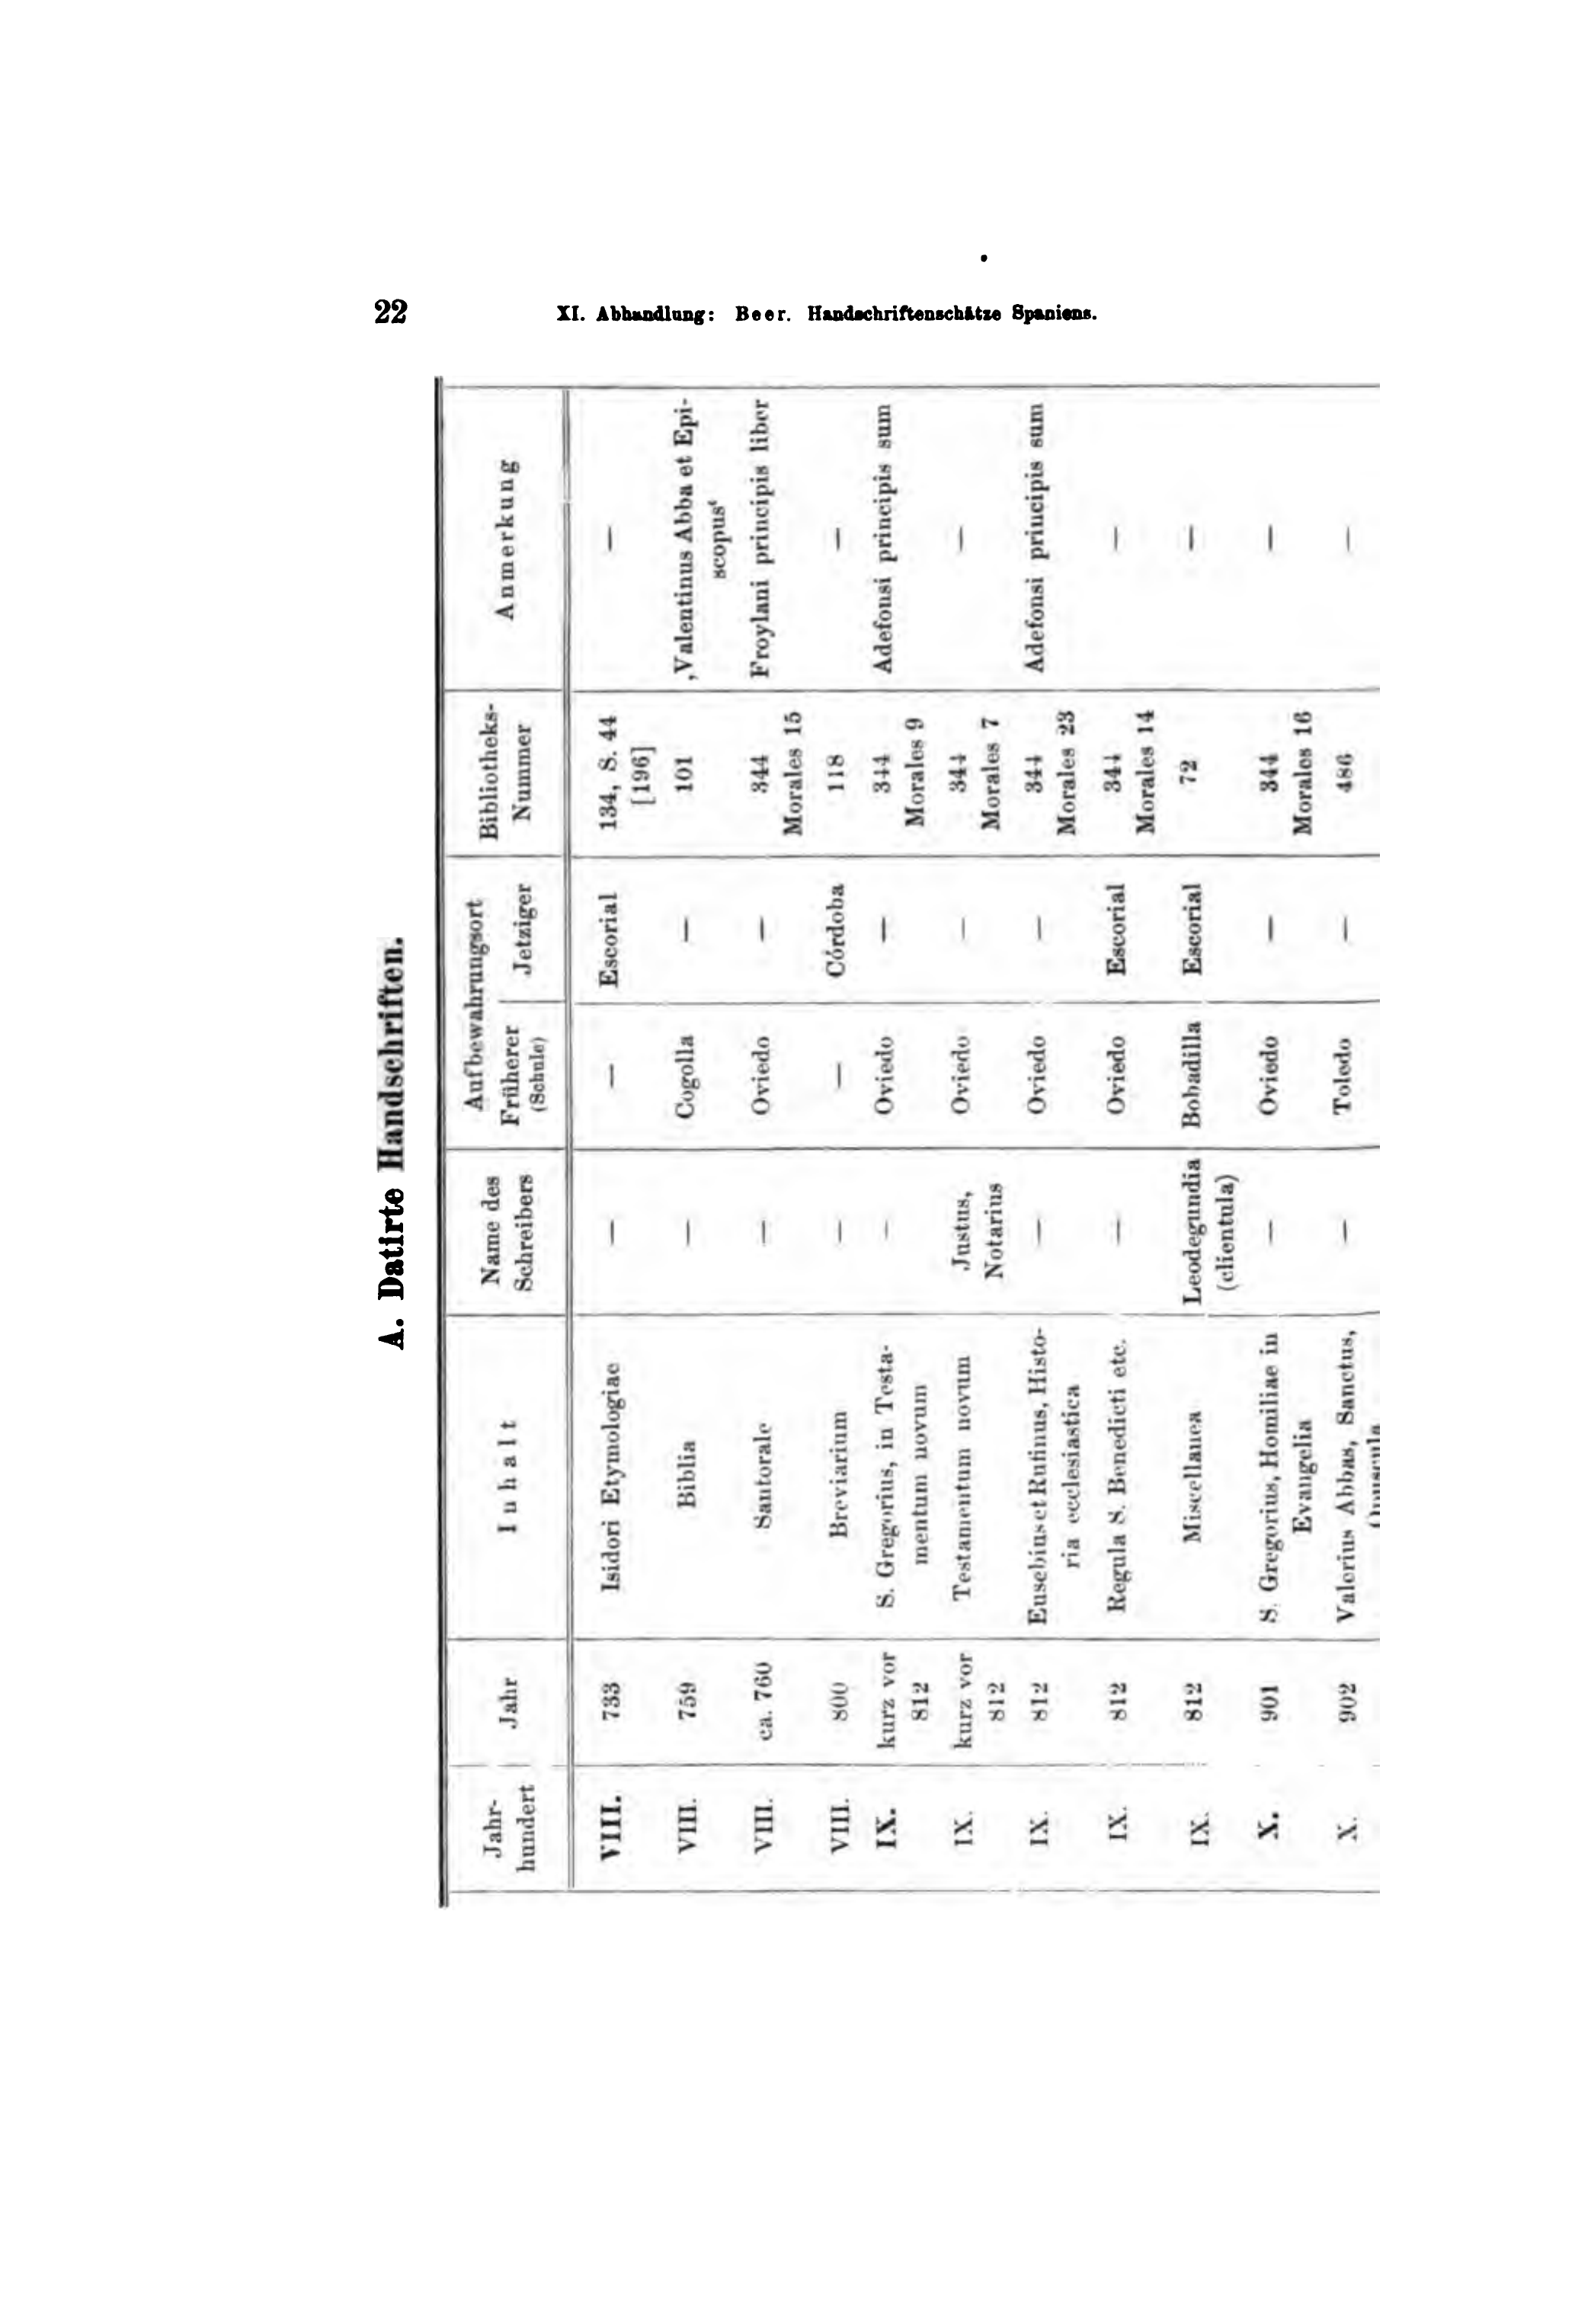 22 XI. Abhandlung: Beer. Handschriftenschätze Spaniens.
A. Datirte Handschriften.
Jahr-hundert | Jahr | Inhalt | Name des Schreibers | Aufbewahrungsort Früherer (Schule) | Jetziger | Bibliotheks-Nummer | Anmerkung
VIII. | 733 | Isidori Etymologiae | — | — | Escorial | 134, S. 44 [196] | —
VIII. | 759 | Biblia | — | Cogolla | — | 101 | ‚Valentinus Abba et Epi-scopus‘
VIII. | ca. 760 | Santorale | — | Oviedo | — | 344 Morales 15 | Froylani principis liber
VIII. | 800 | Breviarium | — | — | Córdoba | 118 | —
IX. | kurz vor 812 | S. Gregorius, in Testa-mentum novum | — | Oviedo | — | 344 Morales 9 | Adefonsi principis sum
IX. | kurz vor 812 | Testamentum novum | Justus, Notarius | Oviedo | — | 344 Morales 7 | —
IX. | 812 | Eusebius et Rufinus, Histo-ria ecclesiastica | — | Oviedo | — | 344 Morales 23 | Adefonsi principis sum
IX. | 812 | Regula S. Benedicti etc. | — | Oviedo | Escorial | 344 Morales 14 | —
IX. | 812 | Miscellanea | Leodegundia (clientula) | Bobadilla | Escorial | 72 | —
X. | 901 | S. Gregorius, Homiliae in Evangelia | — | Oviedo | — | 344 Morales 16 | —
X. | 902 | Valerius Abbas, Sanctus, | — | Toledo | — | 486 | —